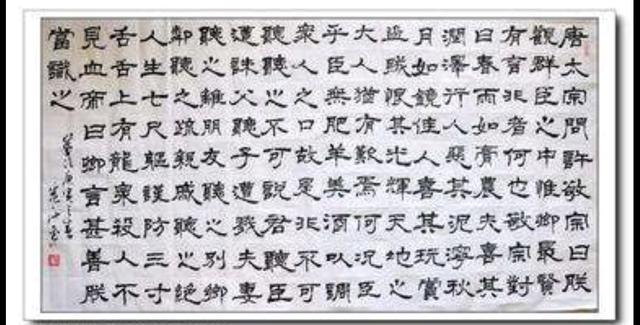 唐太宗問許敬宗曰朕
觀群臣之中惟卿最賢
有言非者何也敬宗對
曰春雨如膏農夫喜其
潤澤行人惡其泥濘秋
月如鏡佳人喜其玩賞
盜賊恨其光輝天地之
大人猶有歎焉何況臣
乎臣無肥羊美酒以調
衆人之口故是非不可
聽聽之不可說君聽臣
遭誅父聽子遭戮夫妻
聽之離朋友聽之別鄉
鄰聽之疏親戚聽之絕
人生七尺軀謹防三寸
舌舌上有龍泉殺人不
見血帝曰卿言甚善朕
當識之